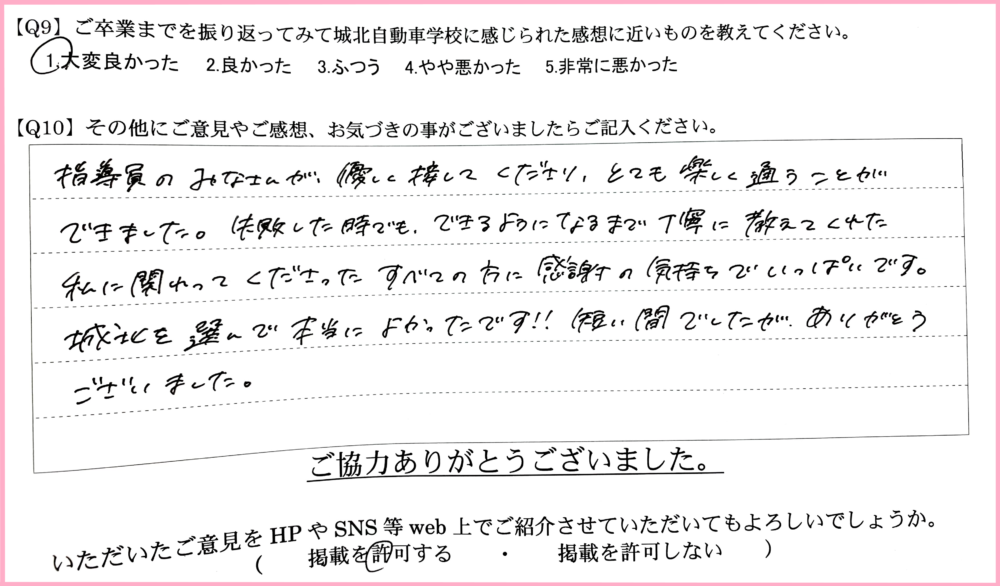 【Q9】ご卒業までを振り返ってみて城北自動車学校に感じられた感想に近いものを教えてください。
1.大変良かった 2.良かった 3.ふつう 4.やや悪かった 5.非常に悪かった
【Q10】その他にご意見やご感想、お気づきの事がございましたらご記入ください。
指導員のみなさんが、優しく接してくださり、とても楽しく通うことが
できました。失敗した時でも、できるようになるまで丁寧に教えてくれた
私に関わってくださったすべての方に感謝の気持ちでいっぱいです。
城北を選んで本当によかったです!! 短い間でしたが、ありがとう
ございました。
ご協力ありがとうございました。
いただいたご意見をHPやSNS等web上でご紹介させていただいてもよろしいでしょうか。
( 掲載を許可する ・ 掲載を許可しない )